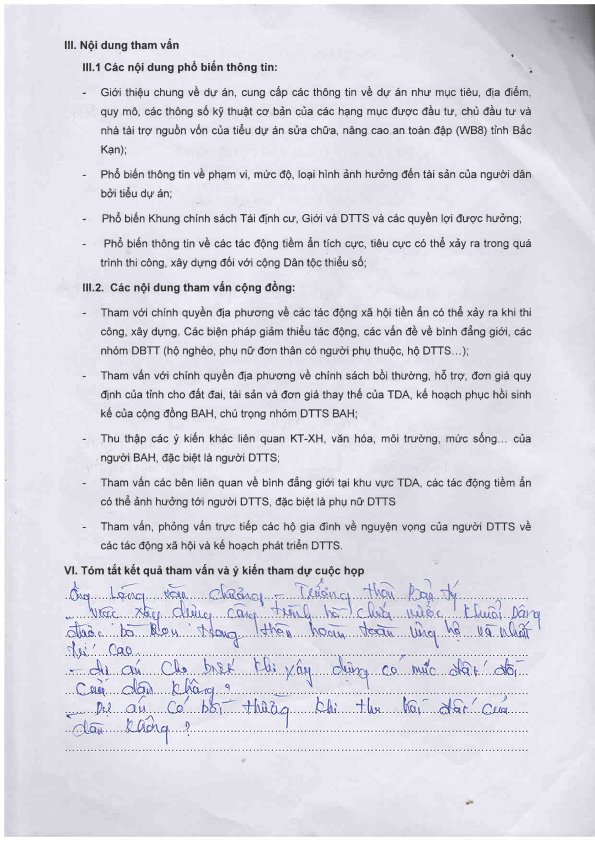 III. Nội dung tham vấn
III.1 Các nội dung phổ biến thông tin:
- Giới thiệu chung về dự án, cung cấp các thông tin về dự án như mục tiêu, địa điểm,
quy mô, các thông số kỹ thuật cơ bản của các hạng mục được đầu tư, chủ đầu tư và
nhà tài trợ nguồn vốn của tiểu dự án sửa chữa, nâng cao an toàn đập (WB8) tỉnh Bắc
Kạn);
- Phổ biến thông tin về phạm vi, mức độ, loại hình ảnh hưởng đến tài sản của người dân
bởi tiểu dự án;
- Phổ biến Khung chính sách Tái định cư, Giới và DTTS và các quyền lợi được hưởng;
- Phổ biến thông tin về các tác động tiềm ẩn tích cực, tiêu cực có thể xảy ra trong quá
trình thi công, xây dựng đối với cộng Dân tộc thiểu số;
III.2. Các nội dung tham vấn cộng đồng:
- Tham với chính quyền địa phương về các tác động xã hội tiền ẩn có thể xảy ra khi thi
công, xây dựng. Các biện pháp giảm thiểu tác động, các vấn đề về bình đẳng giới, các
nhóm DBTT (hộ nghèo, phụ nữ đơn thân có người phụ thuộc, hộ DTTS…);
- Tham vấn với chính quyền địa phương về chính sách bồi thường, hỗ trợ, đơn giá quy
định của tỉnh cho đất đai, tài sản và đơn giá thay thế của TDA, kế hoạch phục hồi sinh
kế của cộng đồng BAH, chú trọng nhóm DTTS BAH;
- Thu thập các ý kiến khác liên quan KT-XH, văn hóa, môi trường, mức sống… của
người BAH, đặc biệt là người DTTS;
- Tham vấn các bên liên quan về bình đẳng giới tại khu vực TDA, các tác động tiềm ẩn
có thể ảnh hưởng tới người DTTS, đặc biệt là phụ nữ DTTS
- Tham vấn, phỏng vấn trực tiếp các hộ gia đình về nguyện vọng của người DTTS về
các tác động xã hội và kế hoạch phát triển DTTS.
VI. Tóm tắt kết quả tham vấn và ý kiến tham dự cuộc họp
Ông văn Chương - Trưởng thôn Bản
- Việc xây dựng công trình hồ chứa nước Khuổi
được bà con trong thôn hoàn toàn ủng hộ và nhất
trí cao
- dự án cho biết khi xây dựng có mức đất đai
của dân không?
- Dự án có bồi thường khi thu hồi đất của
dân không?